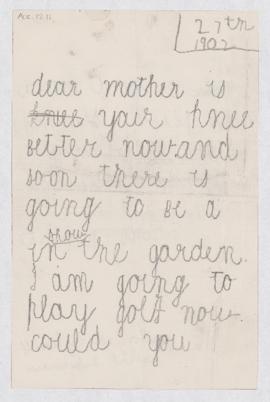 Acc. 12.11
27th
1902
dear mother is
knee your knee
better now and
soon there is
going to be a
show
in the garden.
I am going to
play golf now.
could you